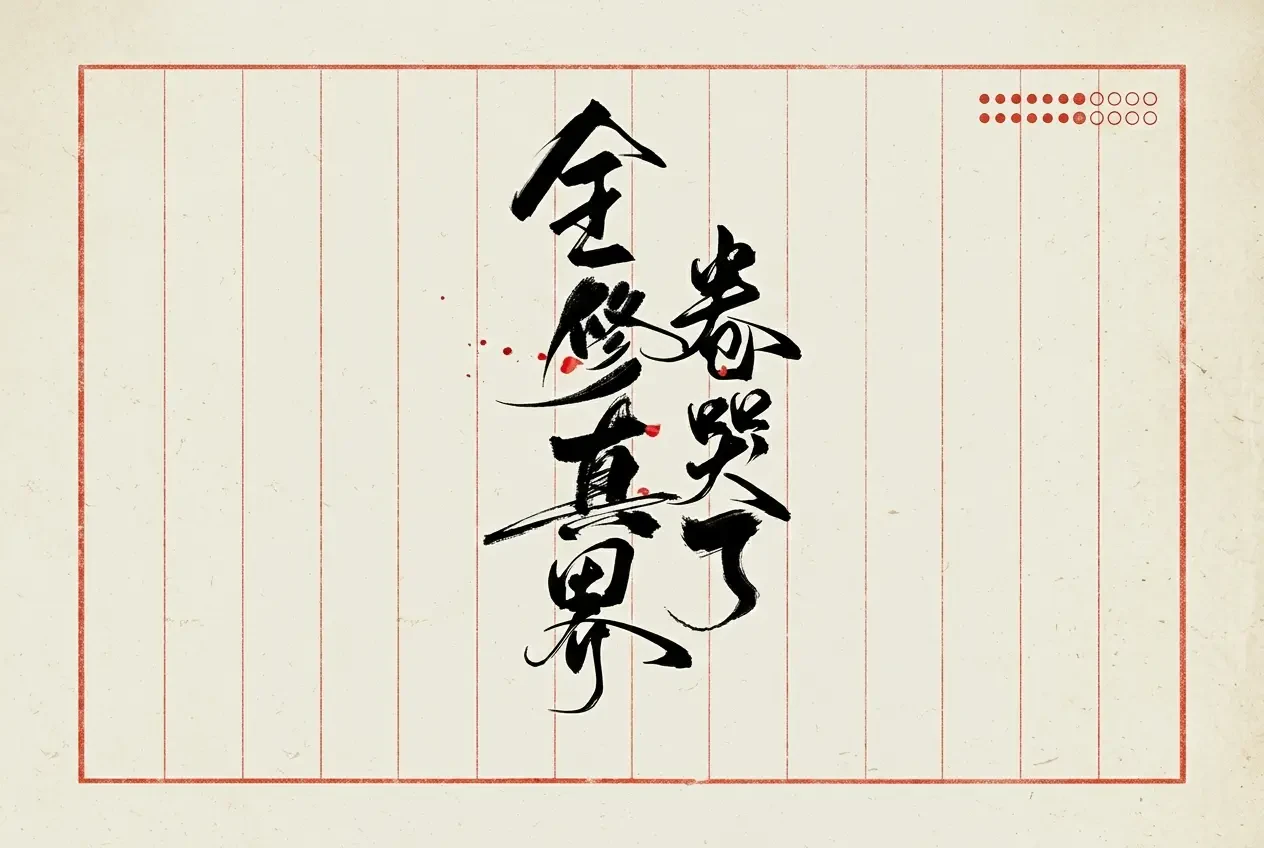 全修真界
卷哭了